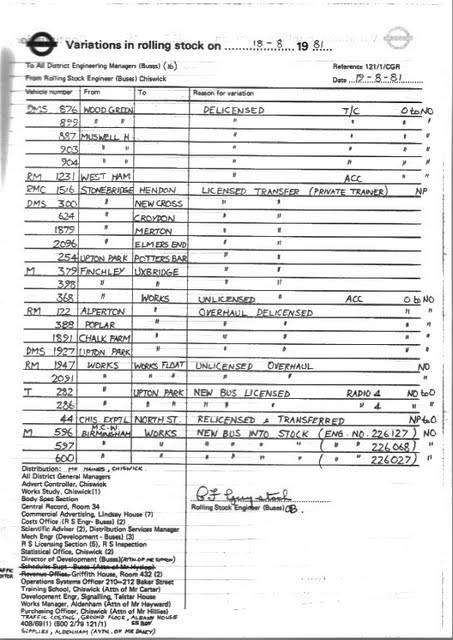 Variations in rolling stock on 18 - 8 - 1981.
To All District Engineering Managers (Buses) (16) Reference 121/1/CGR
From Rolling Stock Engineer (Buses) Chiswick Date 19-8-81
Vehicle number From To Reason for variation
DMS 876 WOOD GREEN DELICENSED T/C O to NO
899 " " " " " "
887 MUSWELL H " " " "
903 " " " " " "
904 " " " " " "
RM 1231 WEST HAM " ACC " "
RMC 1516 STONEBRIDGE HENDON LICENSED TRANSFER (PRIVATE TRAINER) NP
DMS 300 " NEW CROSS " "
624 " CROYDON " "
1879 " MERTON " "
2096 " ELMERS END " "
254 UPTON PARK POTTERS BAR " "
M 379 FINCHLEY UXBRIDGE " "
398 " " " "
368 " WORKS UNLICENSED " ACC O to NO
RM 122 ALPERTON " OVERHAUL DELICENSED " "
388 POPLAR " " " " "
1891 CHALK FARM " " " " "
DMS 1927 UPTON PARK " " " " "
RM 1947 WORKS WORKS FLOAT UNLICENSED OVERHAUL NO
2091 " " " " " "
T 282 UPTON PARK NEW BUS LICENSED RADIO 4 NO to O
286 " " " " " " 4 " "
44 CHIS. EXPTL NORTH ST. RELICENSED & TRANSFERRED NP to O
M 596 M.C.W. BIRMINGHAM WORKS NEW BUS INTO STOCK (ENG. NO. 226127) NO
597 " " " " " " ( " " 226068) "
600 " " " " " " ( " " 226027) "
Distribution: MR HAINES, CHISWICK.
All District General Managers
Advert Controller, Chiswick
Works Study, Chiswick (1)
Body Spec Section
Central Record, Room 34
Commercial Advertising, Lindsay House (7)
Costs Office (R S Engr- Buses) (2)
Rolling Stock Engineer (Buses)
Scientific Adviser (2), Distribution Services Manager
Mech Engr (Development - Buses) (3)
R S Licensing Section (5), R S Inspection
Statistical Office, Chiswick (2)
Director of Development (Buses)
Schedules Supt - Buses (Attn of Mr Hyslop)
Revenue Office, Griffith House, Room 432 (2)
Operations Systems Officer 210-212 Baker Street
Training School, Chiswick (Attn of Mr Carter)
Development Engr, Signalling, Telstar House
Works Manager, Aldenham (Attn of Mr Hayward)
Purchasing Officer, Chiswick (Attn of Mr Hillies)
TRAFFIC COSTING, GROUND FLOOR, ALBANY HOUSE
408/69(1) (500 2/79 121/1) 55 BDY
SUPPLIES, ALDENHAM (ATTN. OF MR DANCY)